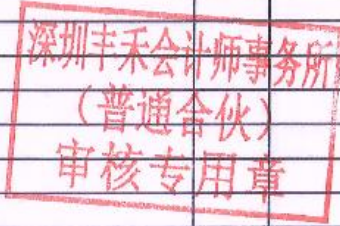 深圳丰禾会计师事务所
（普通合伙）
审核专用章